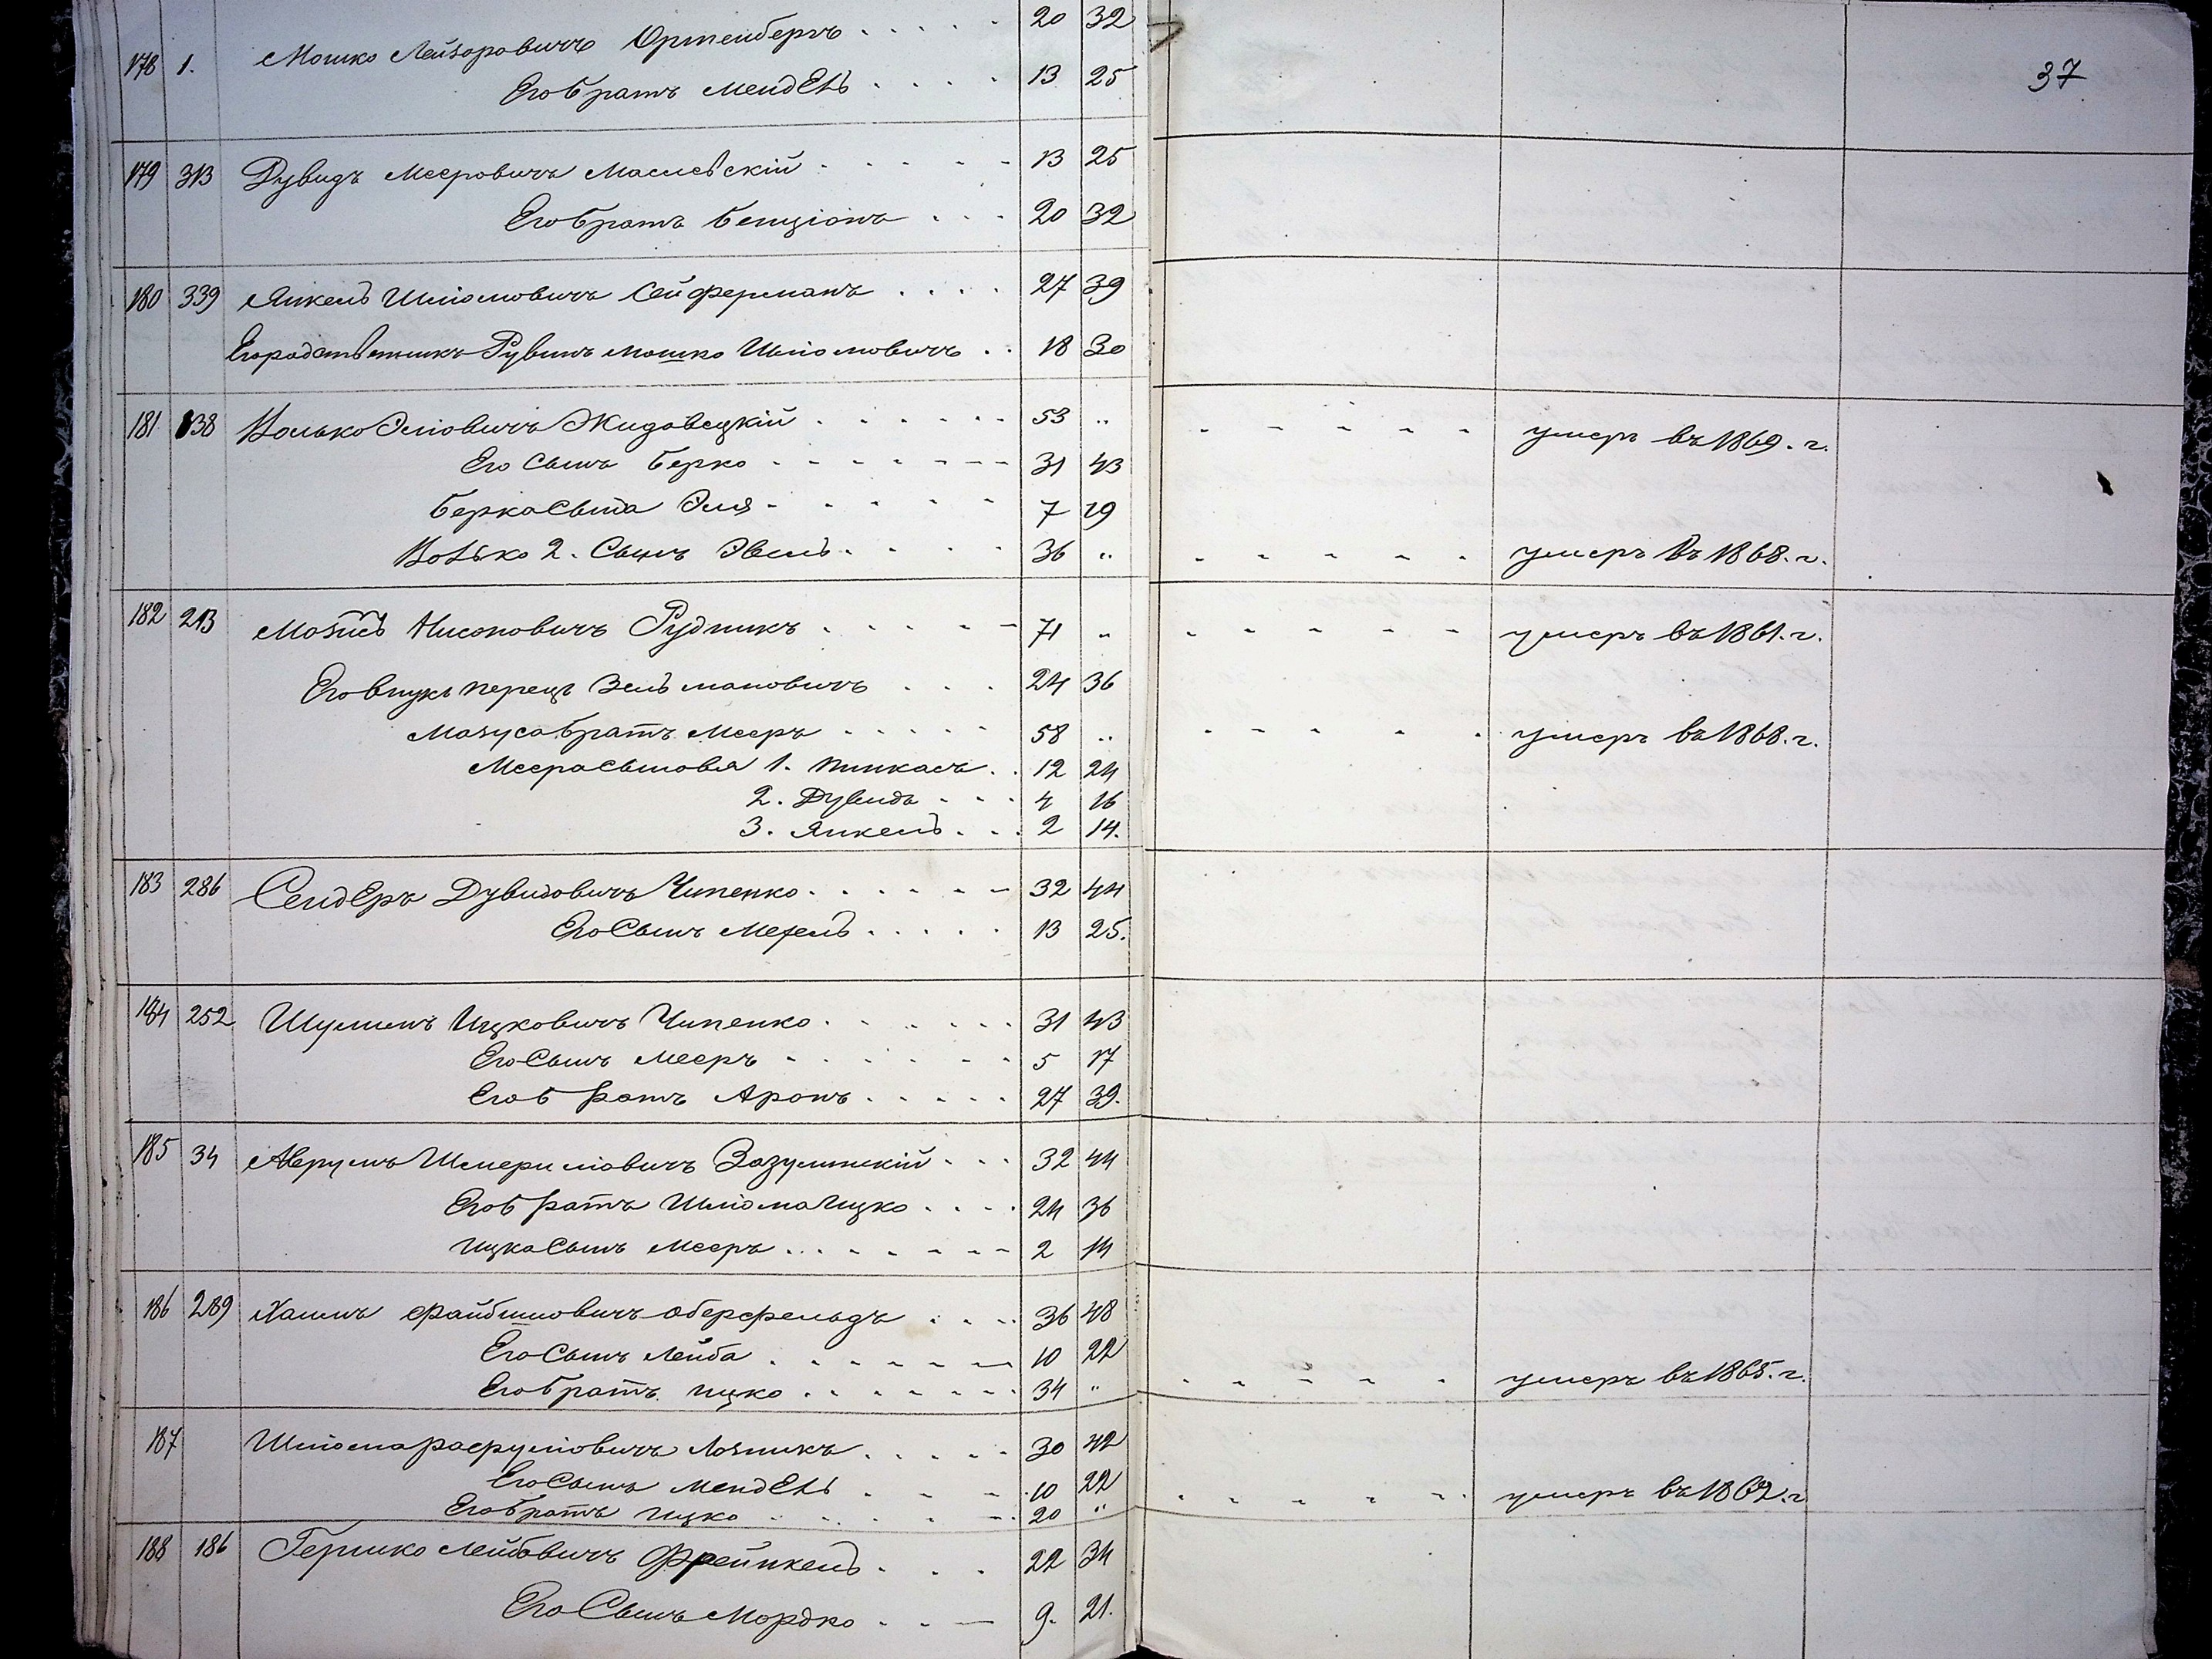 37
178 1. Мошко Лейзоровичъ Ортенбергъ . . . . . 20 32
Его братъ Мендель . . . . 13 25
179 313 Дувидъ Мееровичъ Масиевскій . . . . . 13 25
Его братъ Бенціонъ . . . 20 32
180 339 Янкель Шліомовичъ Сейферманъ . . . . 27 39
Его родственникъ Рувинъ Мошко Шліомовичъ . . 18 30
181 138 Волько Эліовичъ Жидовецкій . . . . . . 53 „ - - - - - - умеръ въ 1869. г.
Его Сынъ Берко - - - - - - - 31 43
Берка Сына Эля - - - - - 7 19
Волько 2. Сынъ Эвель . . . . 36 „ - - - - - умеръ въ 1868. г.
182 213 Мозусь Нисоновичъ Рудникъ . . . . . 71 „ - - - - - умеръ въ 1861. г.
Его внукъ Перецъ Зельмановичъ . . . 24 36
Мозуса братъ Мееръ . . . . . 58 „ - - - - - умеръ въ 1868. г.
Меера Сыновья 1. Пинкасъ . . 12 24
2. Дувидъ - - - 4 16
3. Янкель . . . 2 14.
183 286 Сендеръ Дувидовичъ Чипенко . . . . . . 32 44
Его Сынъ Мехель . . . . . 13 25.
184 252 Шулимъ Ицковичъ Чипенко . . . . . . 31 43
Его Сынъ Мееръ - - - - - - 5 17
Его братъ Аронъ . . . . . 27 39.
185 34 Аврумъ Шмериліовичъ Зазулинскій . . . 32 44
Его братъ Шліома Ицко . . . . 24 36
Ицка Сынъ Мееръ . . . . . . . 2 14
186 289 Хаимъ Файбишовичъ Оберфельдъ . . . . 36 48
Его Сынъ Лейба . . . . . . 10 22
Его братъ Ицко . . . . . . . 34 „ - - - - - умеръ въ 1865. г.
187 Шліома Рафуліовичъ Лозникъ . . . . . 30 42
Его Сынъ Мендель . . . . 10 22
Его братъ Ицко . . . . . 20 „ - - - - - умеръ въ 1862. г.
188 186 Гершко Лейбовичъ Френкель . . . 22 34
Его Сынъ Мордко . . - 9. 21.